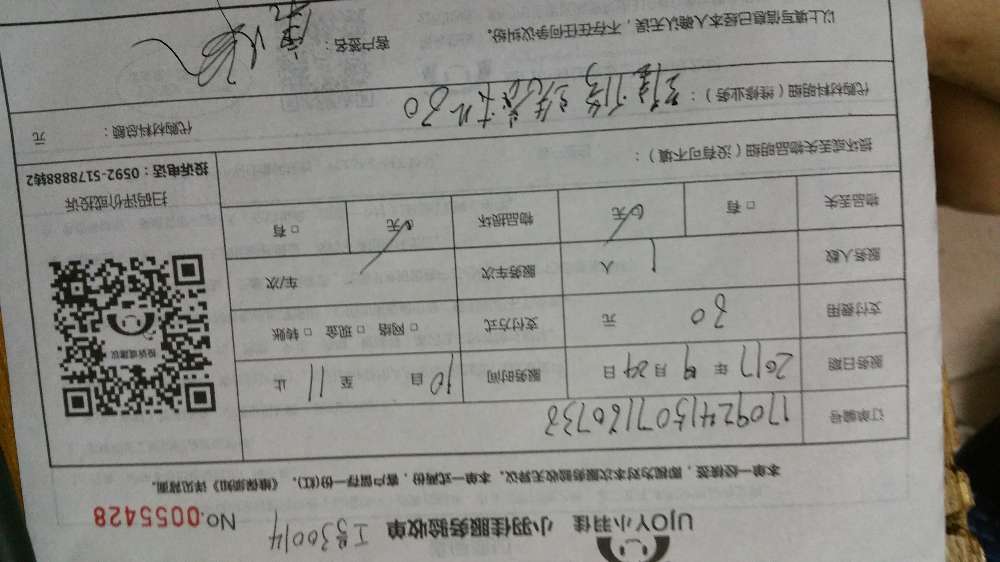 UJOY小羽佳 小羽佳服务验收单 工号30014
No.0055428
本单一经接签，即视为对本次服务验收无异议。本单一式两份，客户留存一份(红)。《维保须知》详见背面。
订单编号 170924150716073
服务日期 2017年9月24日 服务时间 自10至11止
支付费用 30元 支付方式 □网络 □现金 □转账
服务人数 1人 服务车次 车/次
物品丢失 □有 无 物品损坏 □有 无
投诉或建议
扫码评价或投诉
投诉电话：0592-5178888转2
损坏或丢失物品明细（没有可不填）：
代购材料明细（维修业务）：
代购材料总额： 元
以上填写信息已经本人确认无误，不存在任何争议纠纷。
客户签名：